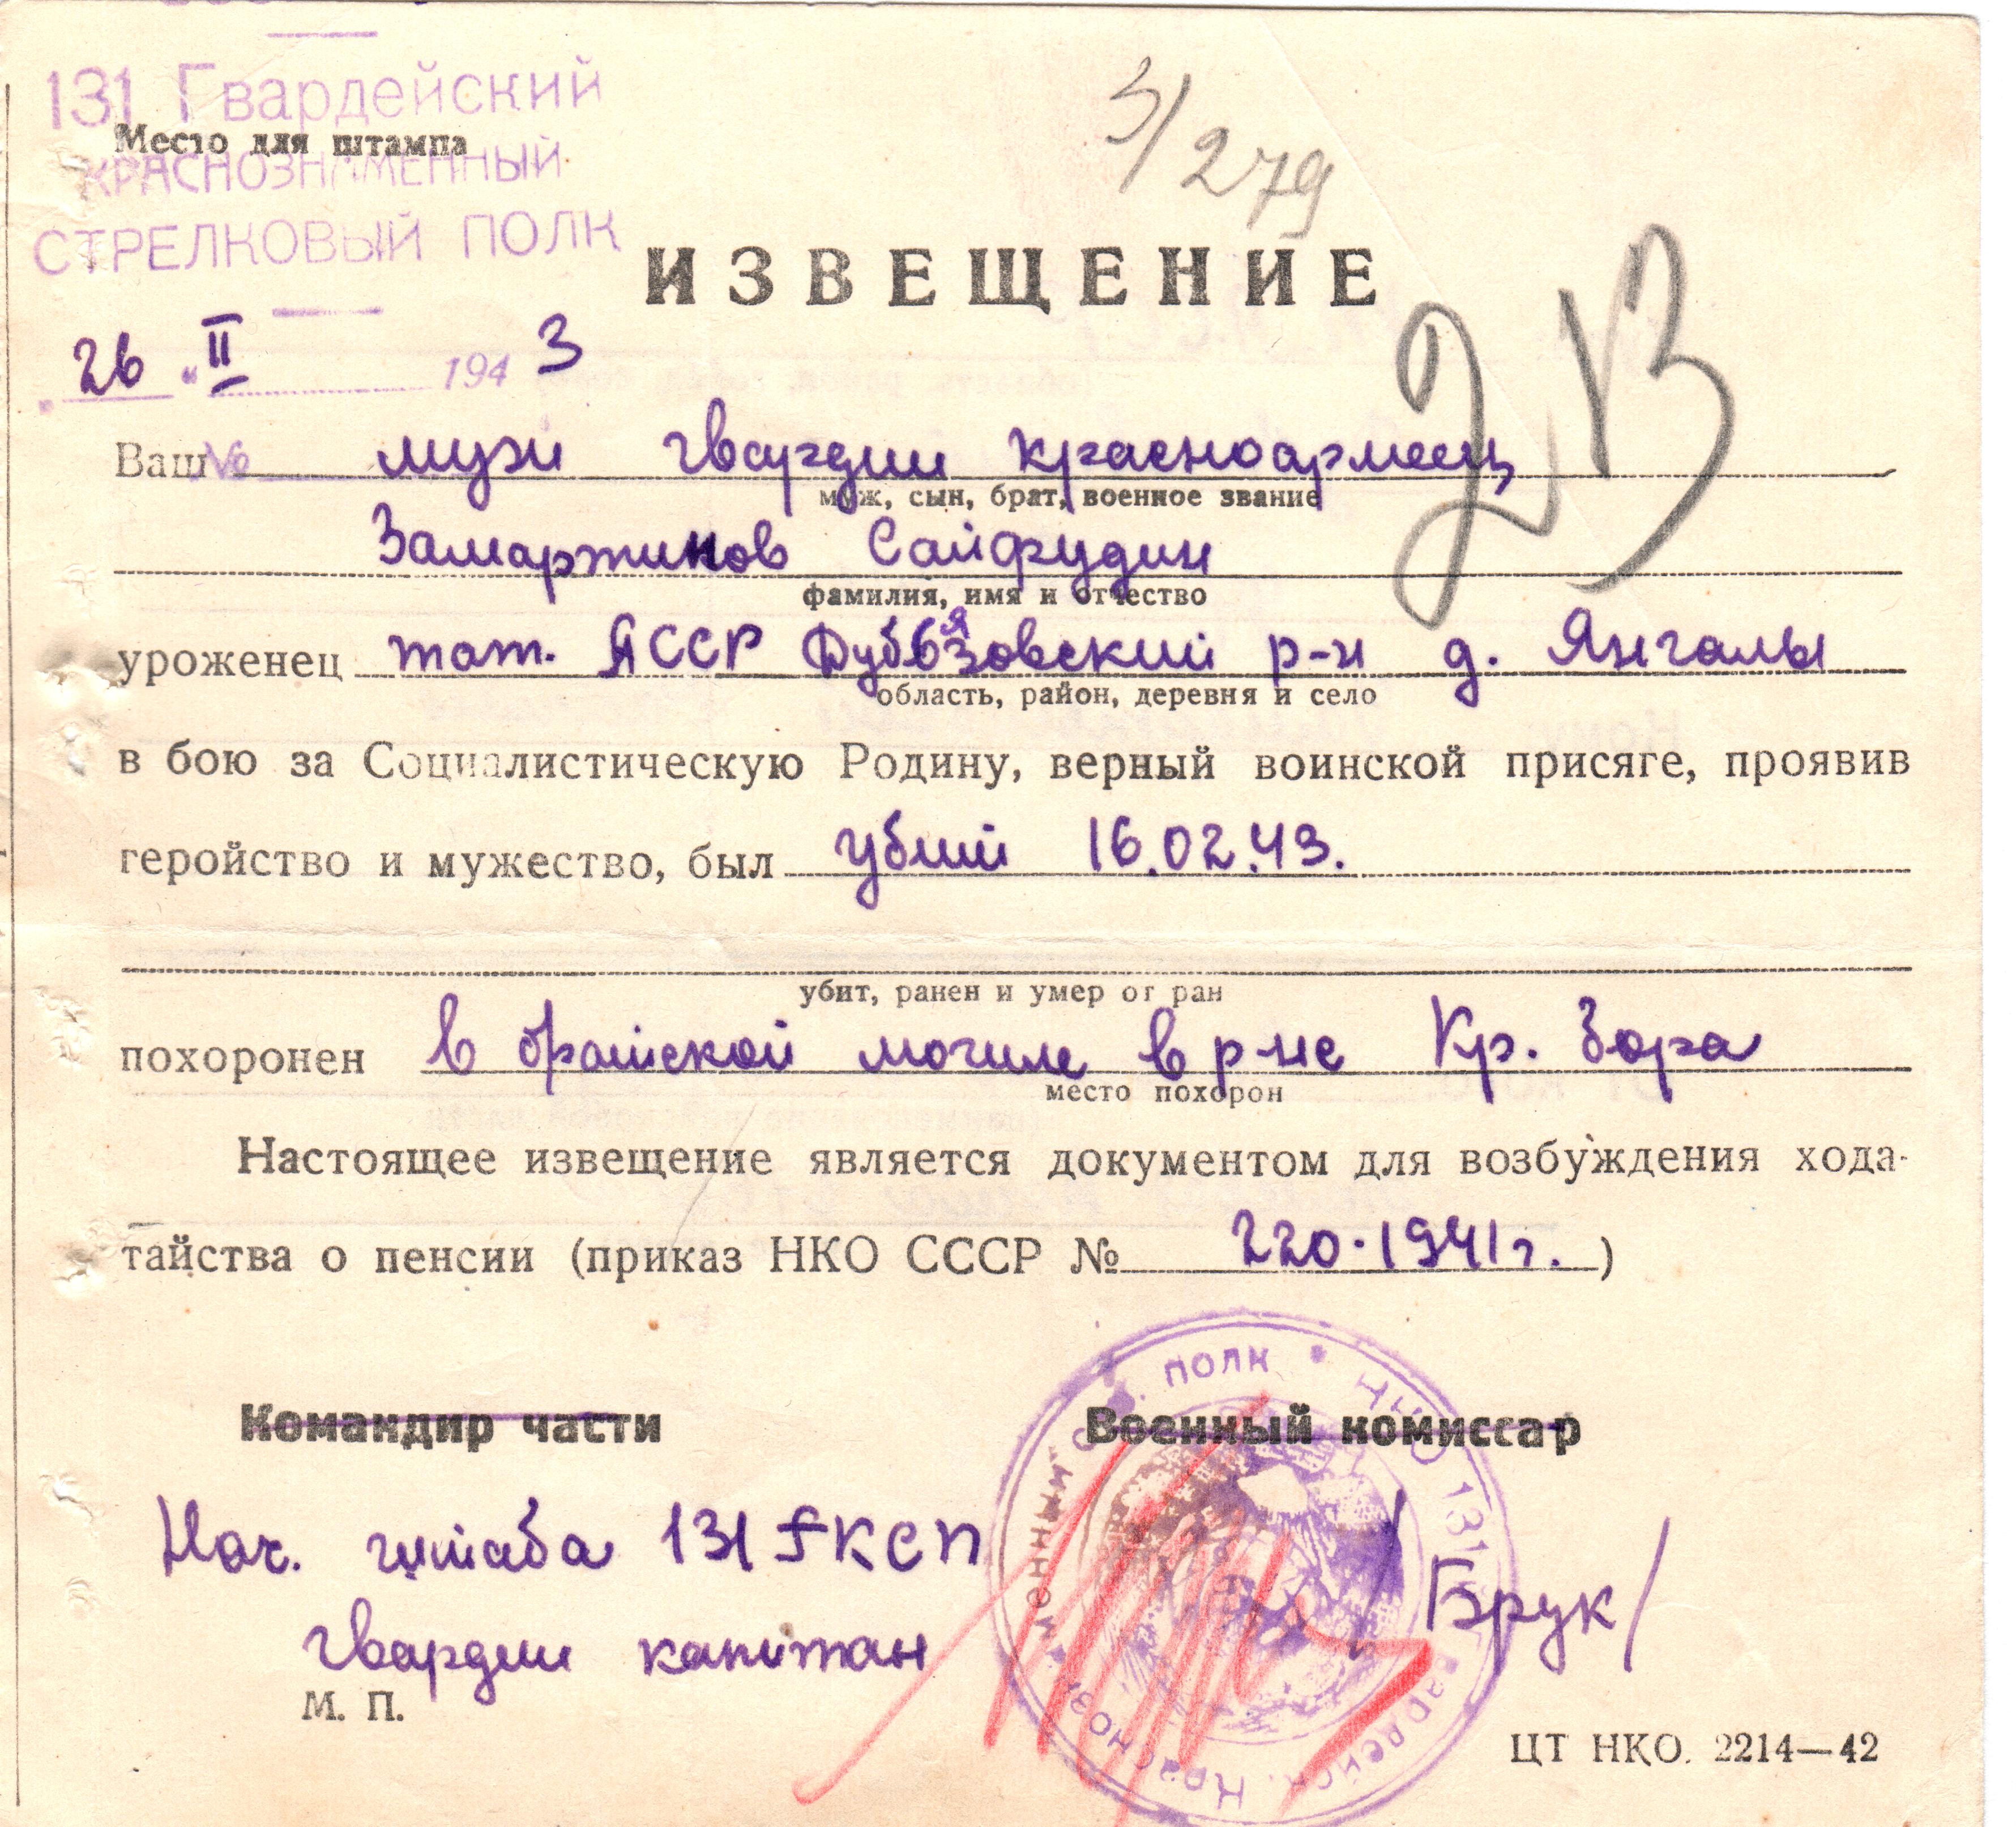 131 Гвардейский
Место для штампа
КРАСНОЗНАМЕННЫЙ
СТРЕЛКОВЫЙ ПОЛК
3/279
ИЗВЕЩЕНИЕ
26 " II 1943
Ваш № муж гвардии красноармеец
муж, сын, брат, военное звание
Замартинов Сайфудин
фамилия, имя и отчество
уроженец тат. АССР Дубьязовский р-н д. Янгалы
область, район, деревня и село
в бою за Социалистическую Родину, верный воинской присяге, проявив
геройство и мужество, был убит 16.02.43.
убит, ранен и умер от ран
похоронен в братской могиле в р-не Кр. Зора
место похорон
Настоящее извещение является документом для возбуждения хода-
тайства о пенсии (приказ НКО СССР № 220·1941 г.)
Командир части Военный комиссар
Нач. штаба 131 ГКСП
/Брук/
гвардии капитан
М. П.
ЦТ НКО. 2214—42
НКО 131 Гвардейск. Краснознаменный С. полк